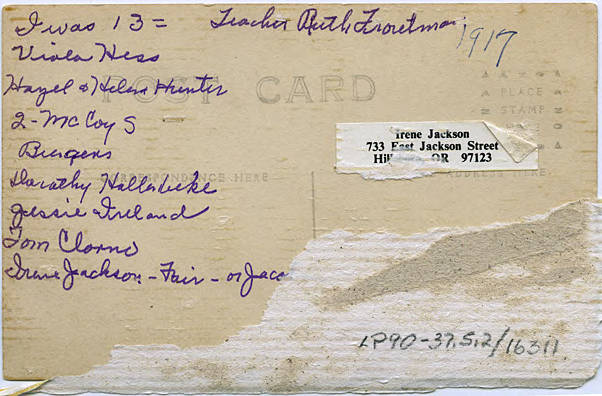 I was 13 = Teacher Ruth Troutman
1917
Viola Hess
Hazel & Helen Hunter
POST CARD
2 - McCoy S
Burgens
PLACE
STAMP
Irene Jackson
733 East Jackson Street
OR 97123
CORRESPONDENCE HERE
ADDRESS HERE
Dorothy Hollenbeke
Jessie Ireland
Tom
Irene Jackson - Fair - or Jack
LP90-37.5.2/16311